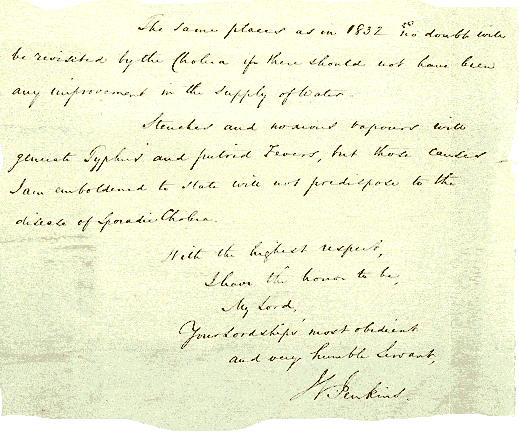 The same places as in 1832 no doubt will
be revisited by the Cholera if there should not have been
any improvement in the supply of Water.
Stenches and noxious vapours will
generate Typhus and putrid Fevers, but those causes
I am emboldened to state will not predispose to the
disease of Sporadic Cholera.
With the highest respect,
I have the honor to be,
My Lord,
Your Lordship's most obedient
and very humble Servant,
Jenkins.